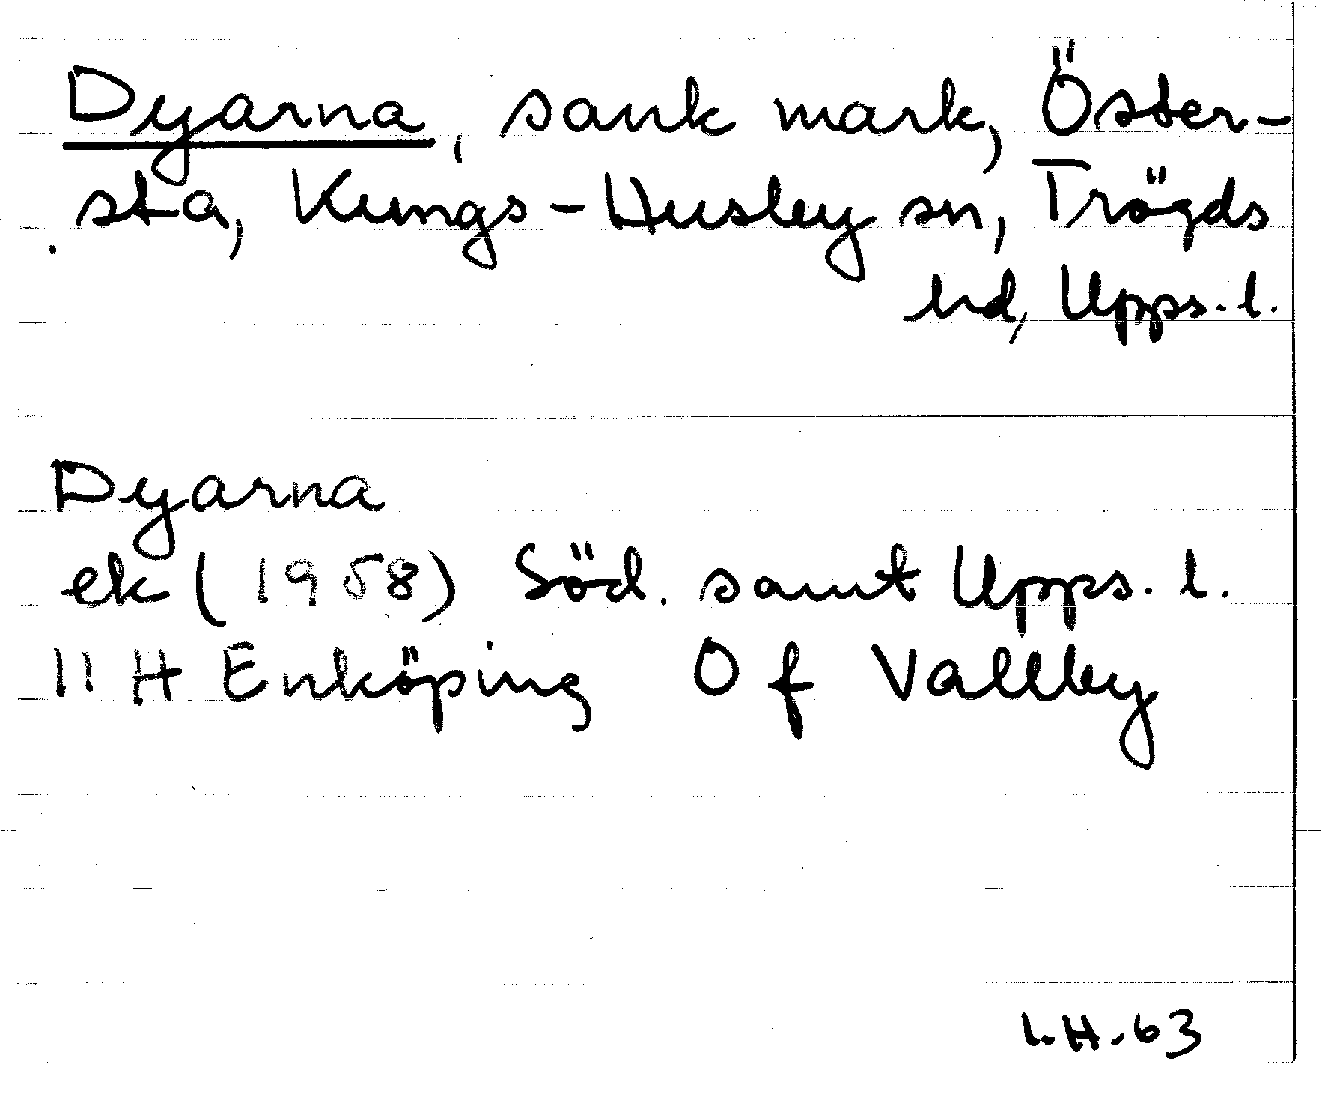 Dyarna, sank mark, Öster-
sta, Kungs-Husby sn, Trögds
hd, Upps. l.
Dyarna
ek (1958) Söd. samt Upps. l.
11 H Enköping 0 f Vallby
I.H.63